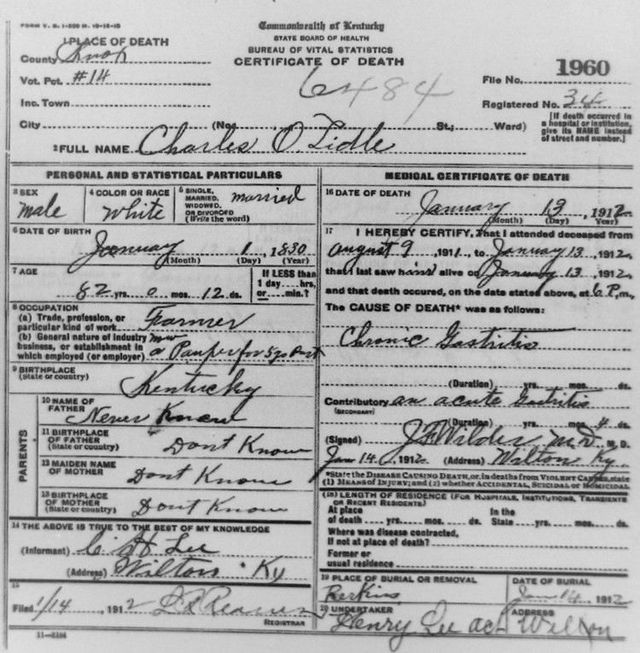 FORM V. S. 1-500 M. 10-15-15
Commonwealth of Kentucky
STATE BOARD OF HEALTH
BUREAU OF VITAL STATISTICS
CERTIFICATE OF DEATH
1 PLACE OF DEATH
County Knox
Vot. Pct. #14
Inc. Town
City (No. St.; Ward)
6484
File No. 1960
Registered No. 34
[If death occurred in
a hospital or institution,
give its NAME instead
of street and number.]
2 FULL NAME Charles O. Lidle
PERSONAL AND STATISTICAL PARTICULARS
3 SEX
male
4 COLOR OR RACE
White
5 SINGLE,
MARRIED,
WIDOWED,
OR DIVORCED
(Write the word)
married
6 DATE OF BIRTH
January 1, 1830
(Month) (Day) (Year)
7 AGE
82 yrs. 0 mos. 12 ds.
If LESS than
1 day....hrs.
or....min.?
8 OCCUPATION
(a) Trade, profession, or
particular kind of work Farmer
(b) General nature of industry
business, or establishment in
which employed (or employer) a Pauper for 5 yrs Past
9 BIRTHPLACE
(State or country) Kentucky
PARENTS
10 NAME OF
FATHER Never Knew
11 BIRTHPLACE
OF FATHER
(State or country) Dont Know
12 MAIDEN NAME
OF MOTHER Dont Know
13 BIRTHPLACE
OF MOTHER
(State or country) Dont Know
14 THE ABOVE IS TRUE TO THE BEST OF MY KNOWLEDGE
(Informant) C. H. Lee
(Address) Wilton Ky
15
Filed 1/14, 1912
REGISTRAR
11-3184
MEDICAL CERTIFICATE OF DEATH
16 DATE OF DEATH
January 13, 1912
(Month) (Day) (Year)
17 I HEREBY CERTIFY, That I attended deceased from
august 9, 1911, to January 13, 1912,
that I last saw him alive on January 13, 1912,
and that death occured, on the date stated above, at 6 P.m,
The CAUSE OF DEATH* was as follows:
Chronic Gastritis
(Duration) yrs. mos. ds.
Contributory an acute Gastritis
(SECONDARY)
(Duration) yrs. mos. 4 ds.
(Signed) J F Wilder MD. M. D.
Jan 14, 1912 (Address) Wilton Ky.
*State the DISEASE CAUSING DEATH, or, in deaths from VIOLENT CAUSES, state
(1) MEANS OF INJURY; and (2) whether ACCIDENTAL, SUICIDAL or HOMICIDAL
(18) LENGTH OF RESIDENCE (FOR HOSPITALS, INSTITUTIONS, TRANSIENTS
OR RECENT RESIDENTS)
At place
of death....yrs.....mos.....ds.
In the
State....yrs.....mos.....ds.
Where was disease contracted,
if not at place of death?
Former or
usual residence
19 PLACE OF BURIAL OR REMOVAL
Perkins
DATE OF BURIAL
Jan 14, 1912
20 UNDERTAKER
Henry Lee act
ADDRESS
Wilton